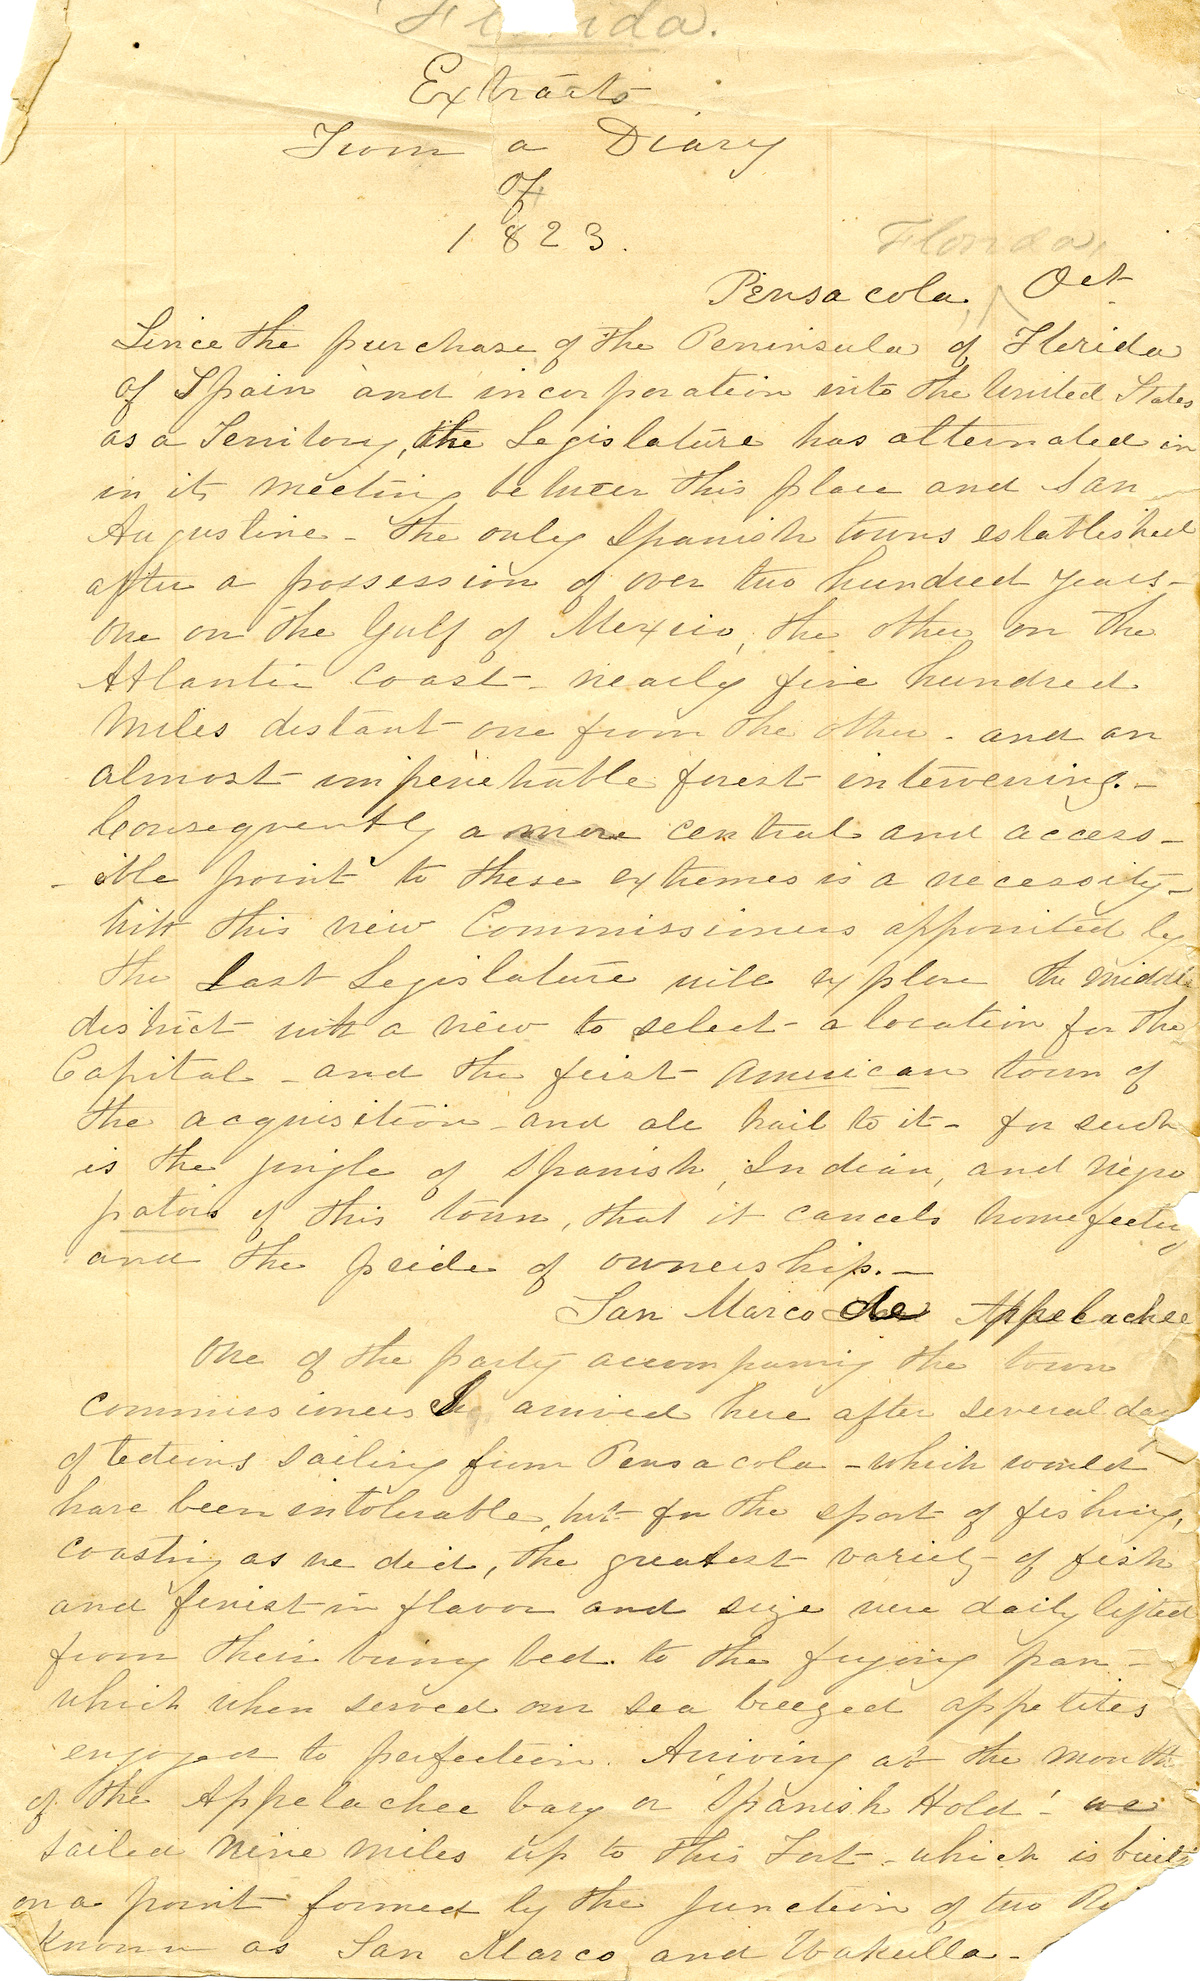 Florida.
Extracts
From a Diary
of
1823.
Florida,
Pensacola, Oct.
Since the purchase of the Peninsula of Florida
of Spain and incorporation into the United States
as a Territory, the Legislature has alternated in
in its meeting between this place and San
Augustine - the only Spanish towns established
after a possession of over two hundred years -
one on the Gulf of Mexico, the other on the
Atlantic coast - nearly five hundred
miles distant one from the other - and an
almost impenetrable forest intervening. -
Consequently a more central and access-
-ible point to these extremes is a necessity -
With this view Commissioners appointed by
the last Legislature will explore the middle
district with a view to select a location for the
Capital - and the first American town of
the acquisition - and all hail to it - for such
is the jingle of Spanish, Indian, and Negro
patois of this town, that it cancels home feeling
and the pride of ownership. -
San Marco de Appelachee
One of the party accompanying the town
commissioners I arrived here after several days
of tedious sailing from Pensacola - which would
have been intolerable, but for the sport of fishing,
coasting as we did, the greatest variety of fish
and finest in flavor and size were daily lifted
from their briny bed to the frying pan -
which when served our sea breezed appetites
enjoyed to perfection. Arriving at the mouth
of the Appelachee bay or 'Spanish Hold' - we
sailed nine miles up to this Fort - which is built
on a point formed by the junction of two Ri
known as San Marco and Wakulla -